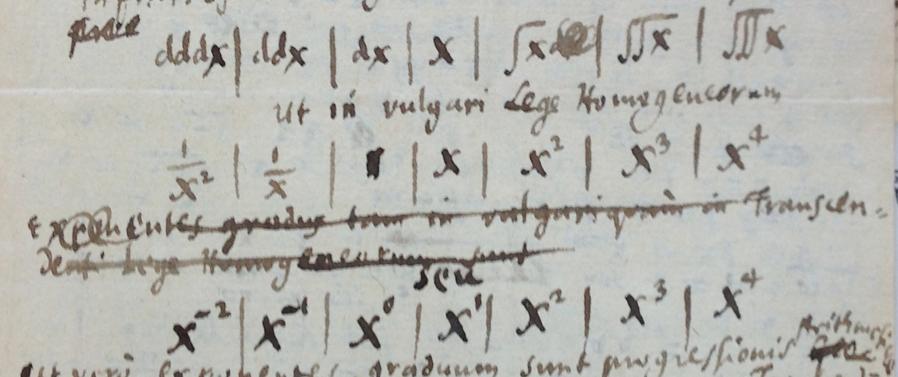 dddx | ddx | dx | x | ∫x | ∫∫x | ∫∫∫x
Ut in vulgari Lege Homogeneorum
1/x² | 1/x | 1 | x | x² | x³ | x⁴
Exponentes gradus tam in vulgari quàm in Transcen=
denti Lege Homogeneorum sunt
seu
x⁻² | x⁻¹ | x⁰ | x¹ | x² | x³ | x⁴
verò Exponentes graduum sunt progressionis